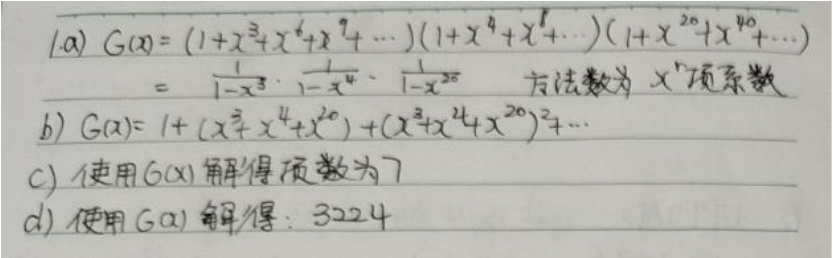 1.a) G(x) = (1+x³+x⁶+x⁹+…)(1+x⁴+x⁸+…)(1+x²⁰+x⁴⁰+…)
= 1/(1-x³) · 1/(1-x⁴) · 1/(1-x²⁰) 方法数为 xʳ项系数
b) G(x) = 1+(x³+x⁴+x²⁰)+(x³+x⁴+x²⁰)²+…
c) 使用G(x)解得项数为7
d) 使用G(x)解得: 3224